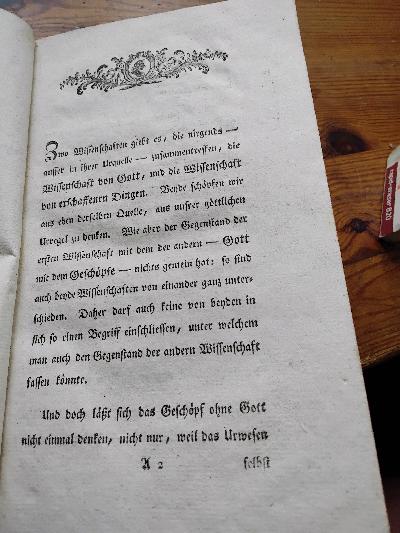 Zwo Wissenschaften giebt es, die nirgends —
ausser in ihrer Urquelle — zusammentreffen, die
Wissenschaft von Gott, und die Wissenschaft
von erschaffenen Dingen. Beyde schöpfen wir
aus eben derselben Quelle, aus unsrer göttlichen
Urregel zu denken. Wie aber der Gegenstand der
ersten Wissenschaft mit dem der andern — Gott
mit dem Geschöpfe — nichts gemein hat: so sind
auch beyde Wissenschaften von einander ganz unter-
schieden. Daher darf auch keine von beyden in
sich so einen Begriff einschliessen, unter welchem
man auch den Gegenstand der andern Wissenschaft
fassen könnte.
Und doch läßt sich das Geschöpf ohne Gott
nicht einmal denken, nicht nur, weil das Urwesen
A 2
selbst